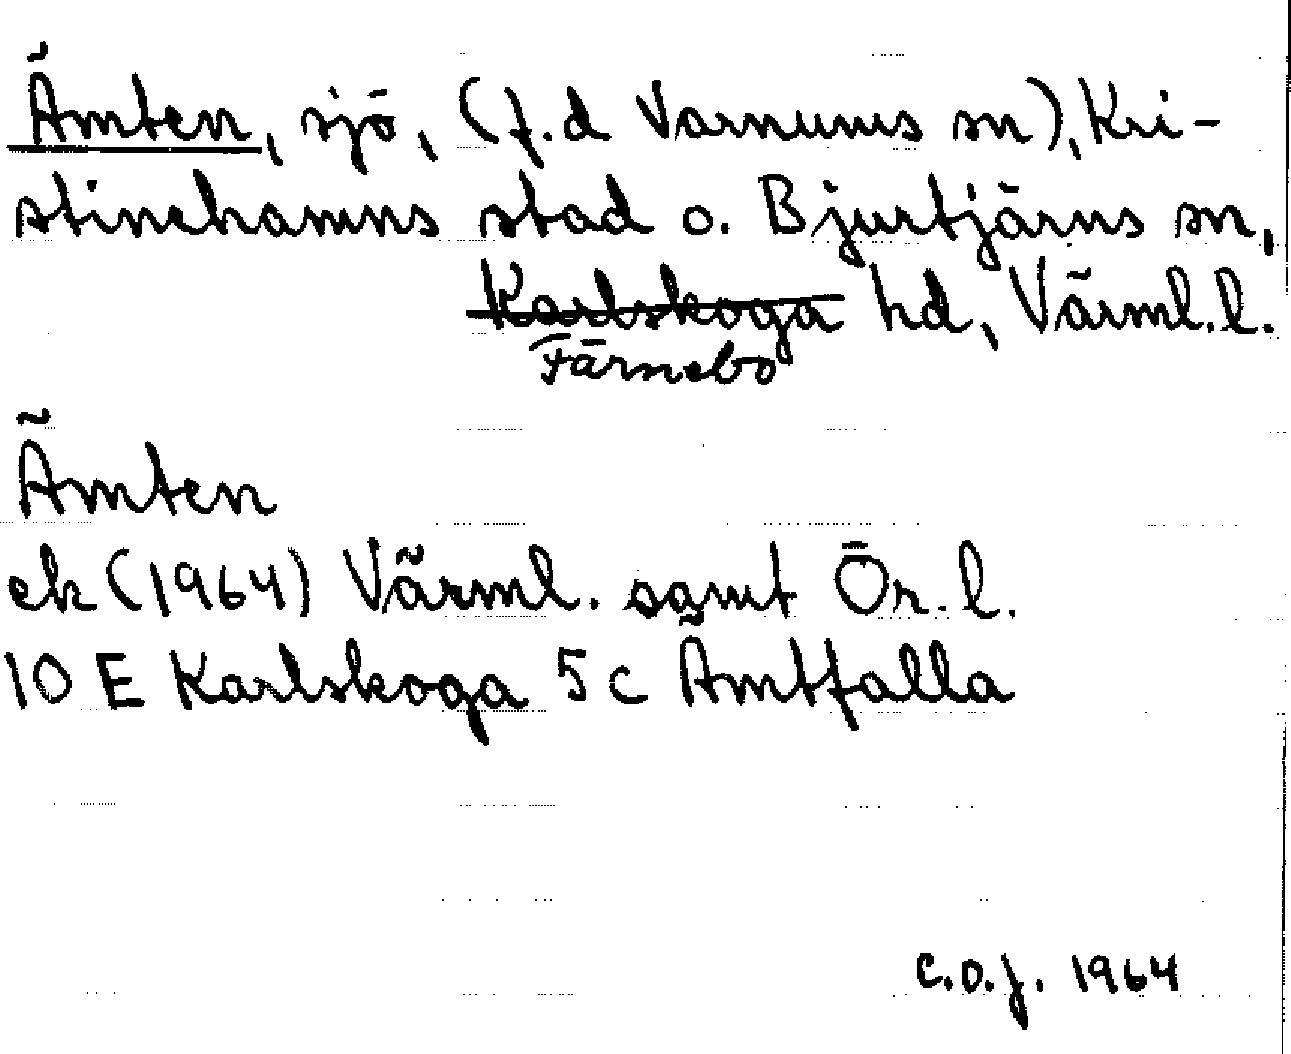 Ämten, sjö, (f.d Varnums sn), Kri-
stinehamns stad o. Bjurtjärns sn,
Karlskoga hd, Värml.l.
Färnebo
Ämten
ek (1964) Värml. samt Ör. l.
10 E Karlskoga 5 c Ämtfalla
C.O.J. 1964